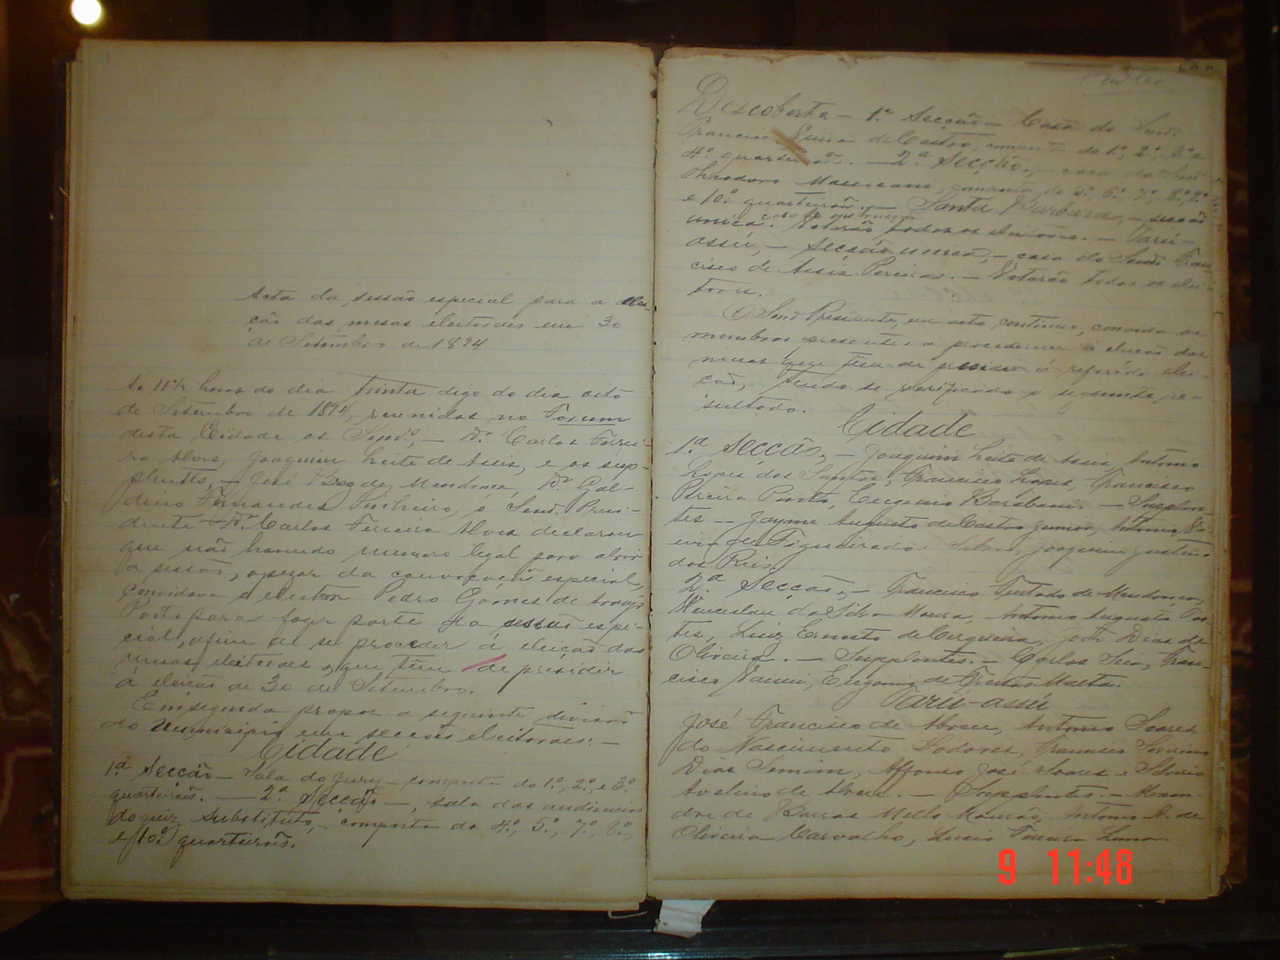 Acta da sessão especial para a elei-
ção das mesas eleitoraes em 30
de Setembro de 1894
Ás 11 1/2 horas do dia trinta digo do dia oito
de Setembro de 1894, reunidos no Forum
desta Cidade os Senrs. — Dr. Carlos Ferrei-
ra Alves, Joaquim Leite de Assis, e os sup-
plentes, — José Braz de Mendonça, Dr. Gal-
dino Fernandes Pinheiro, o Senr. Presi-
dente Dr. Carlos Ferreira Alves declarou
que não havendo numero legal para abrir
a sessão, apezar da convocação especial,
convidava o eleitor Pedro Gomes de Araujo
Porto para fazer parte da sessão espe-
cial, afim de se proceder á eleição das
mesas eleitoraes, que têm de presidir
a eleição de 30 de Setembro.
Em seguida propoz a seguinte divisão
do municipio em secções eleitoraes: —
Cidade
1ª Secção — Sala do Jury — composta do 1º, 2º, e 3º
quarteirões. — 2ª Secção —, sala das audiencias
do juiz substituto, — composta do 4º, 5º, 7º, 8º,
e 10º quarteirões.
Descoberto — 1ª Secção — Casa do Senr.
Francisco de Castro, do 1º, 2º, 3º e
4º quarteirões. — 2ª Secção, — casa do Senr.
Theodoro do 5º, 6º, 7º, 8º, 9º
e 10º quarteirões. — Santa Barbara, — secção
unica. Votarão todos os eleitores. — Tarú-
assú, — Secção unica, — casa do Senr. Fran-
cisco de Assis Pereira. — Votarão todos os elei-
tores.
O Senr. Presidente, em acto continuo, convida os
membros presentes a procederem á eleição das
mesas que têm de presidir á referida elei-
ção, tendo se verificado o seguinte re-
sultado.
Cidade
1ª Secção, — Joaquim Leite de Assis, Antonio
Lopes dos Santos, Francisco Lopes, Francisco
Pereira Ponté, Eugenio Barabani. — Supplen-
tes — Jayme Augusto de Castro Junior, Antonio
de Figueiredo e Silva, Joaquim Justino
dos Reis.
2ª Secção, — Francisco Furtado de Mendonça,
Wenceslau da Silva Moura, Antonio Augusto For-
tes, Luiz Ernesto de Cerqueira, José Dias de
Oliveira. — Supplentes. — Carlos Fran-
cisco Eugenio de Freitas Malta.
Tarú-assú
José Francisco de Abreu, Antonio Soares
do Nascimento Francisco
Dias Affonso José Soares e Silverio
Avelino de Abreu. — Supplentes. — Alexan-
dre de Barros Mello Antonio A. de
Oliveira Carvalho, Lucio Ferreira Lima.
9 11:48